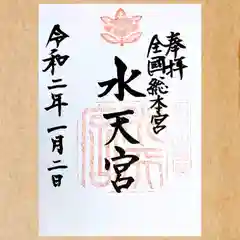 奉拝
全國総本宮
水天宮
令和二年一月二日